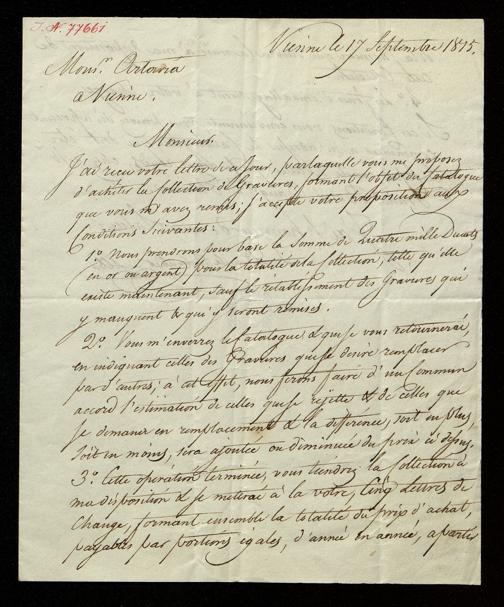 J. N. 77661
Vienne le 17 Septembre 1815.
Monsr. Artaria
a Vienne.
Monsieur.
J'ai reçu votre lettre de ce Jour, par laquelle vous me proposez
d'acheter la Collection de Gravures, formant l'objet du Catalogue
que vous m'avez remis; j'accepte votre proposition aux
Conditions Suivantes:
1o. Nous prendrons pour base la Somme de Quatre mille Ducats
(en or ou argent) pour la totalité de la Collection, telle qu'elle
existe maintenant, sauf le retablissement des Gravures qui
y manquent & qui y seront remises.
2o. Vous m'enverez le Catalogue & que je vous retournerai,
en indiquant celles des Gravures que je desire remplacer
par d'autres; à cet effet, nous ferons faire d'un commun
accord l'estimation de celles que je rejette & de celles que
je demande en remplacement & la différence, soit en plus,
soit en moins, sera ajoutée ou diminuée du prix ci dessus.
3o. Cette opération terminée, vous tiendrez la Collection à
ma disposition & je metterai à la votre Cinq Lettres de
Change, formant ensemble la totalité du prix d'achat,
payables par portions egales, d'année en année, a partir